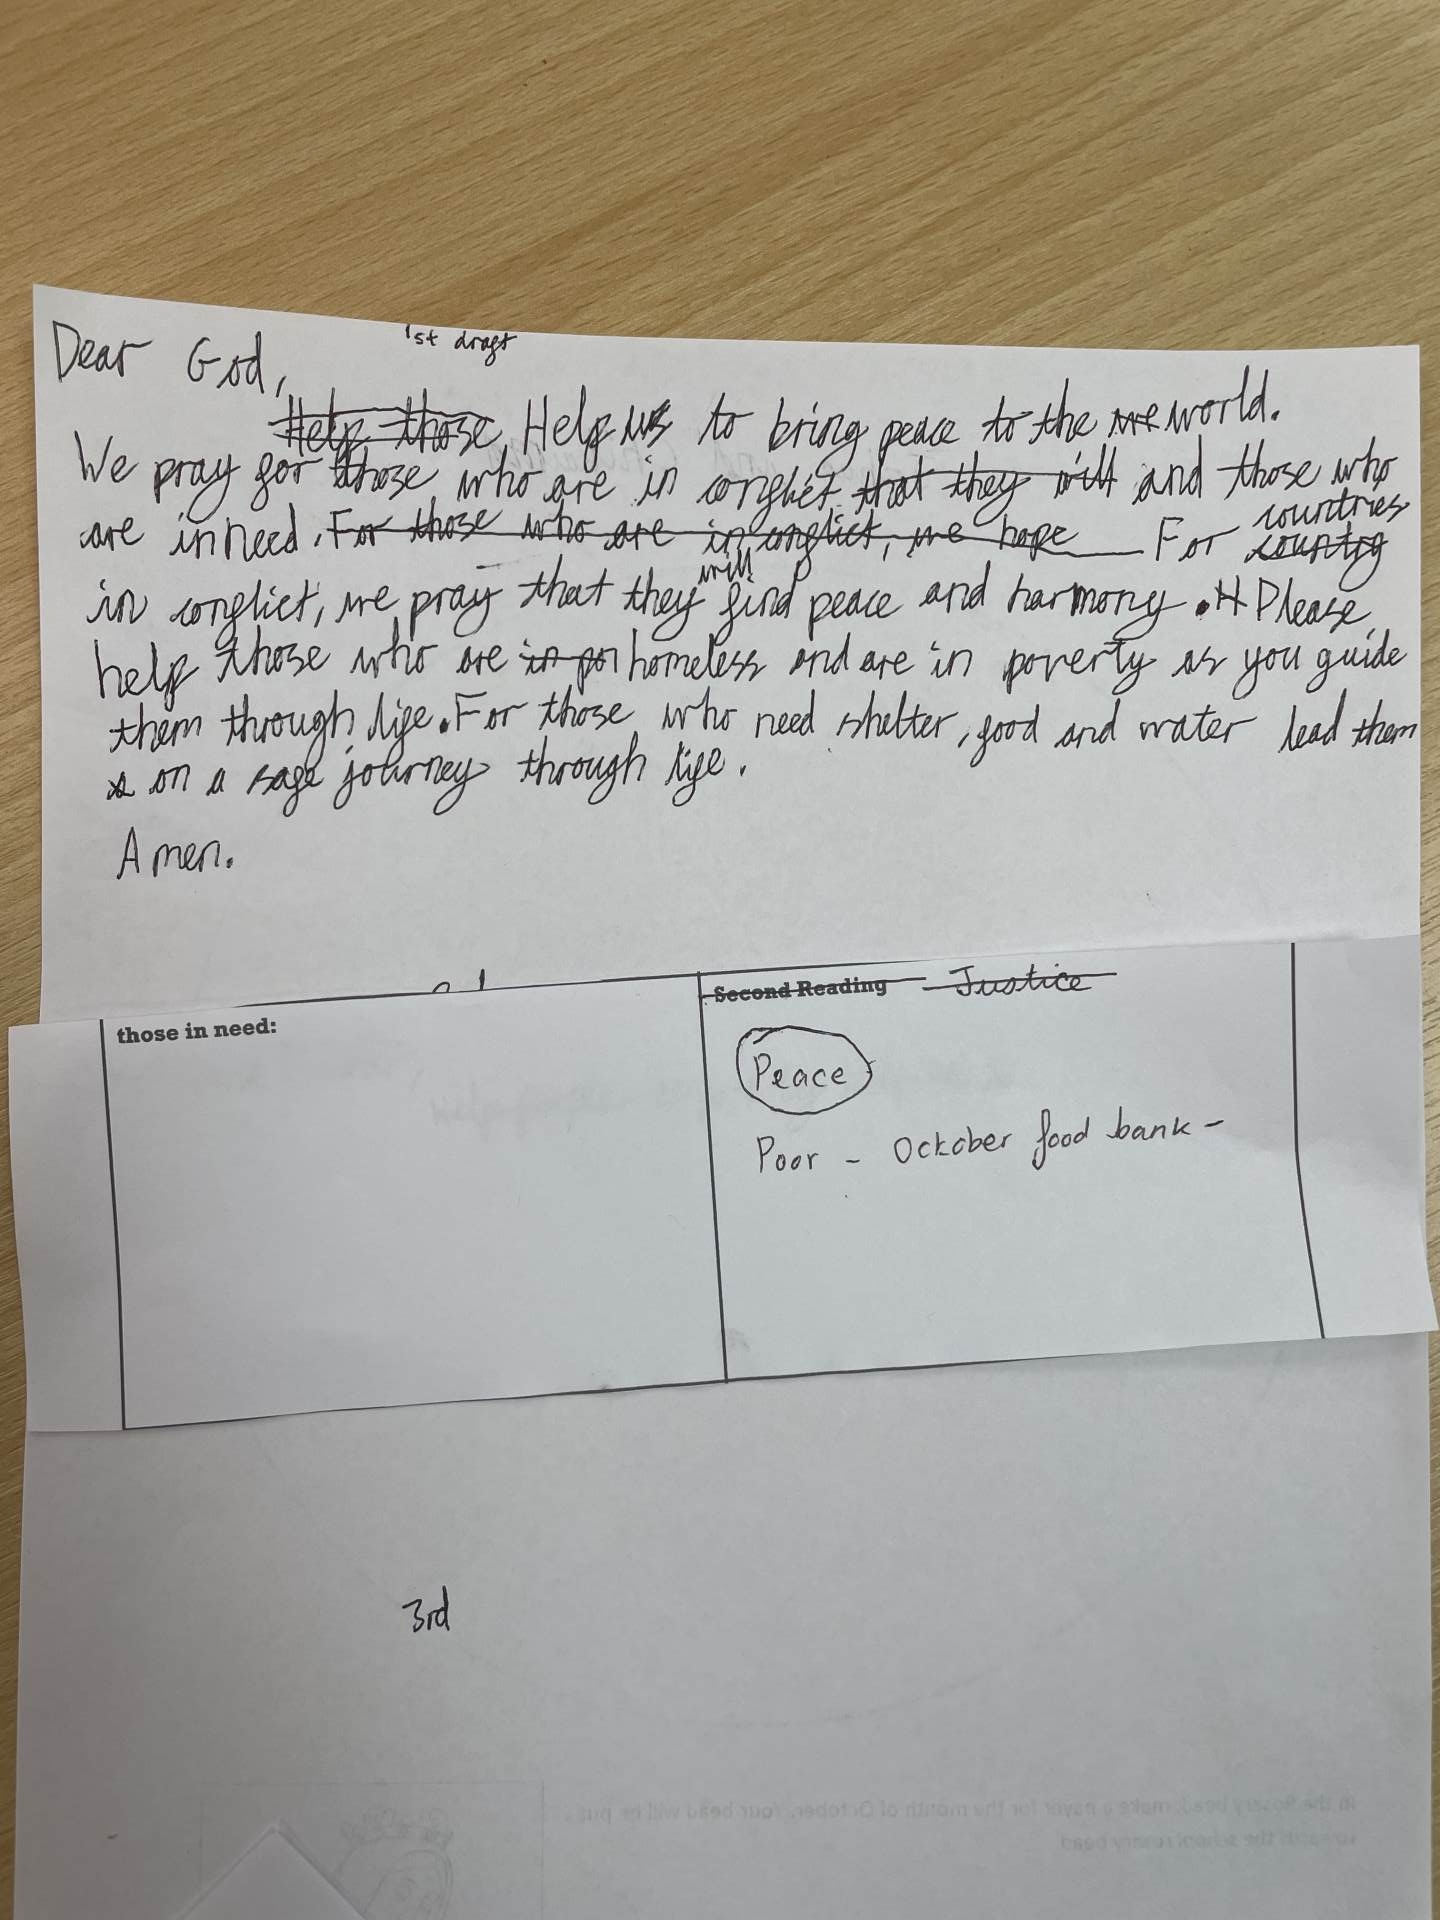 1st draft
Dear God,
Help those Help us to bring peace to the we world.
We pray for those who are in conflict that they will and those who
are in need. For those who are in conflict, we hope For country countries
in conflict, we pray that they will find peace and harmony. H Please
help those who are in po homeless and are in poverty as you guide
them through life. For those who need shelter, food and water lead them
on a safe journey through life.
Amen.
those in need:
Second Reading - Justice
Peace
Poor - Ocktober food bank -
3rd
in the Rosary bead, make a prayer for the month of October. Your bead will be put
towards the school rosary bead